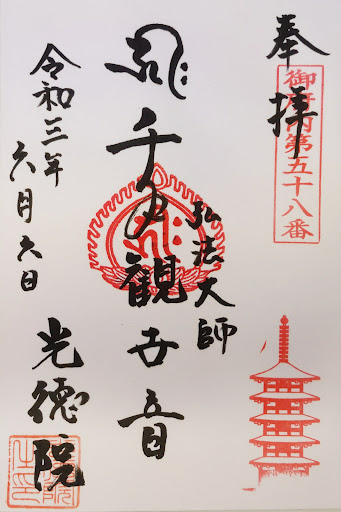 奉拝
御府内第五十八番
弘法大師
千手觀世音
令和三年
六月六日
光徳院